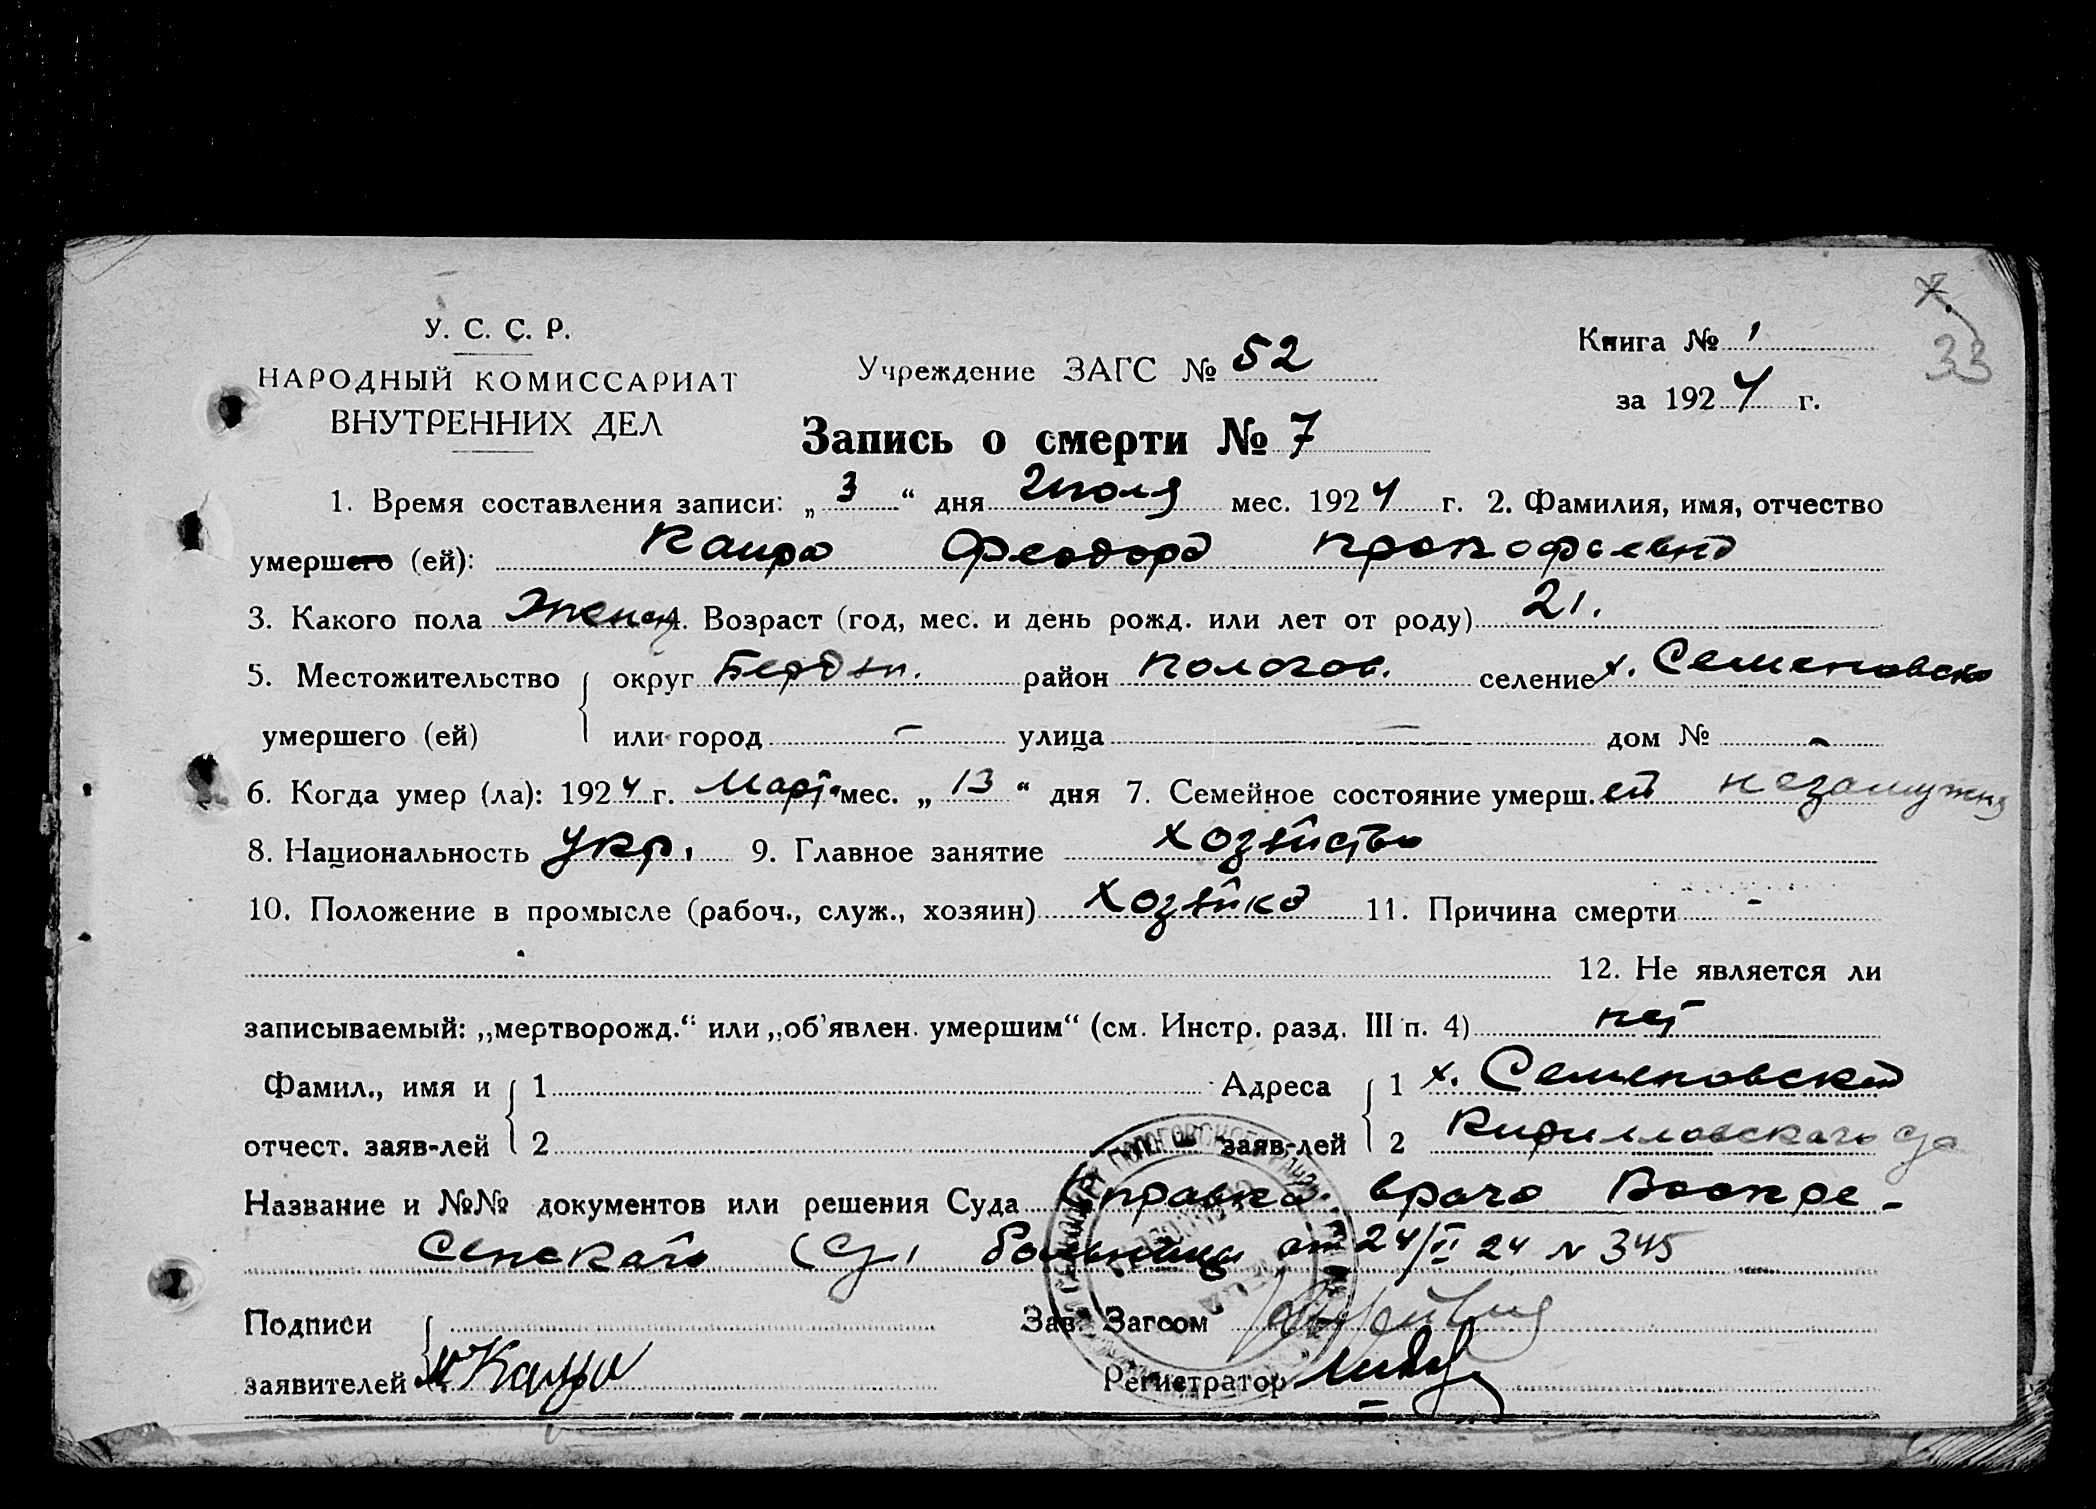 У. С. С. Р.
НАРОДНЫЙ КОМИССАРИАТ
ВНУТРЕННИХ ДЕЛ
Учреждение ЗАГС № 52
Книга № 1
за 1924 г.
33
Запись о смерти № 7
1. Время составления записи: „ 3 “ дня Июля мес. 1924 г. 2. Фамилия, имя, отчество
умершего (ей): Каира Феодора Прокофьевна
3. Какого пола Женск. 4. Возраст (год, мес. и день рожд. или лет от роду) 21.
5. Местожительство округ Бердян. район Пологов. селение х. Семеновско
умершего (ей) или город - улица - дом № -
6. Когда умер (ла): 1924 г. Март. мес. „ 13 “ дня 7. Семейное состояние умерш.ей незамужня
8. Национальность укр. 9. Главное занятие хозяйство
10. Положение в промысле (рабоч., служ., хозяин) хозяйка 11. Причина смерти -
12. Не является ли
записываемый: „мертворожд.“ или „об’явлен. умершим“ (см. Инстр. разд. III п. 4) нет
Фамил., имя и 1 Адреса 1 х. Семеновский
отчест. заяв-лей 2 заяв-лей 2 Кирилловского с/с
Название и №№ документов или решения Суда Справка врача Воскре-
сенского больницы от 24/II 24 № 345
Подписи Зав. Загсом
заявителей Регистратор